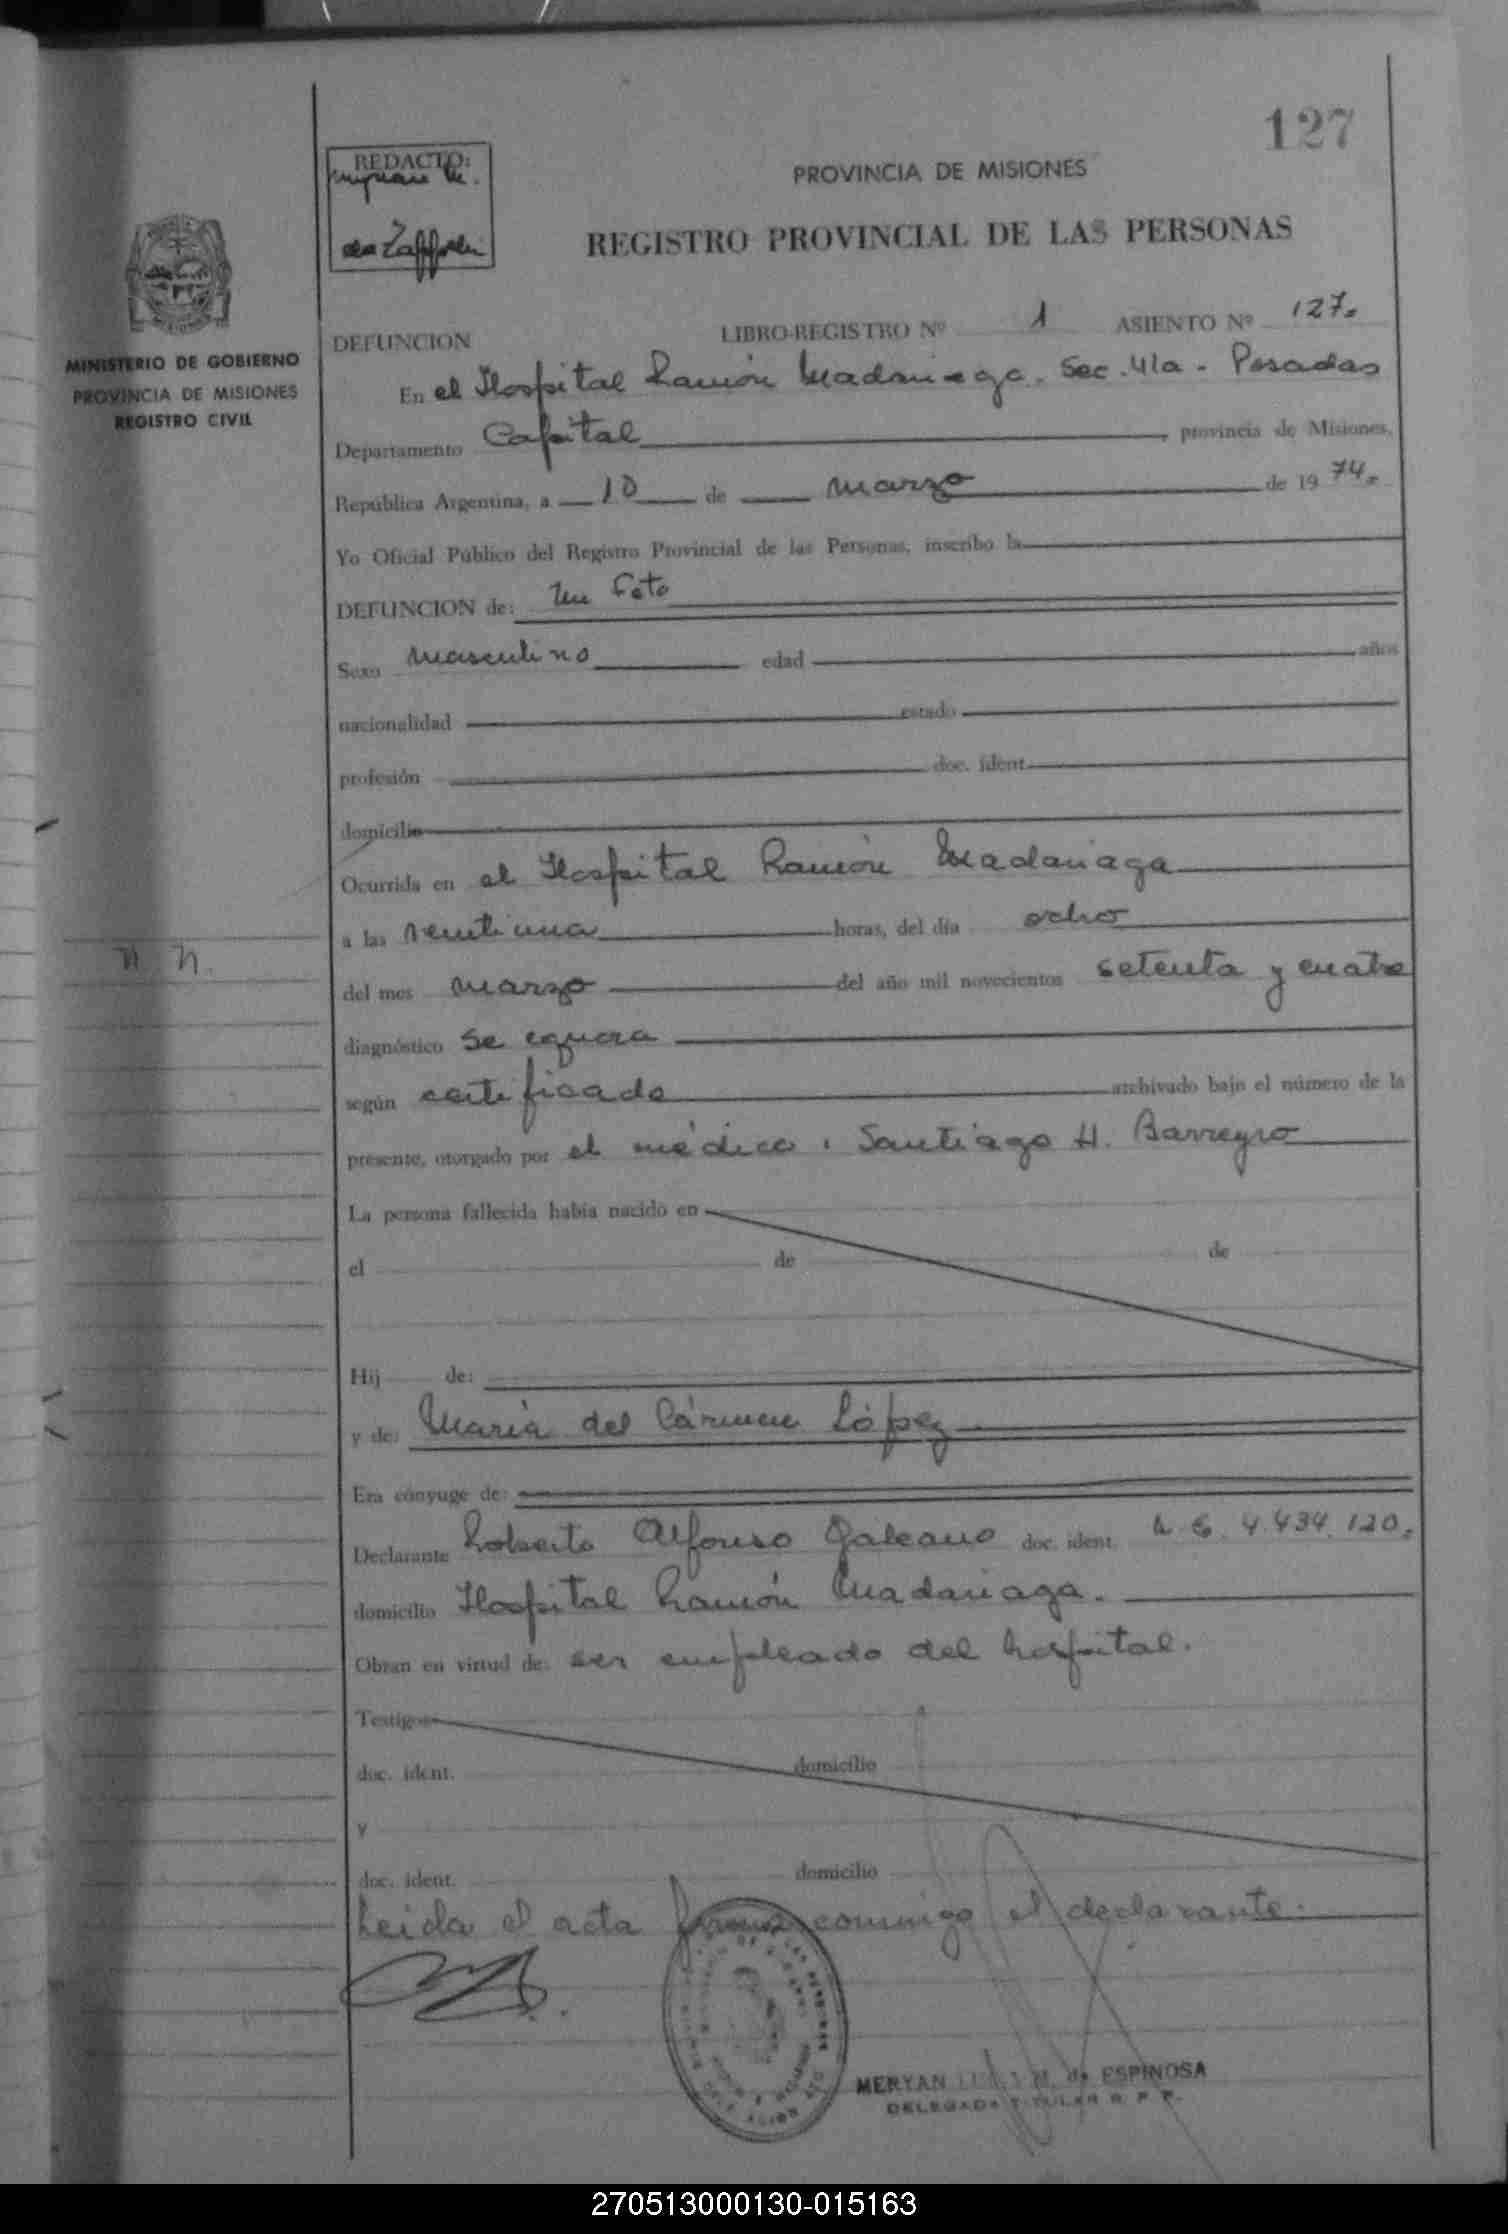 127
REDACTO:
PROVINCIA DE MISIONES
REGISTRO PROVINCIAL DE LAS PERSONAS
MINISTERIO DE GOBIERNO
PROVINCIA DE MISIONES
REGISTRO CIVIL
DEFUNCION LIBRO-REGISTRO Nº 1 ASIENTO Nº 127=
En el Hospital Ramón Madariaga. Sec. 4ta - Posadas
Departamento Capital provincia de Misiones,
República Argentina, a 10 de marzo de 19 74=
Yo Oficial Público del Registro Provincial de las Personas, inscribo la
DEFUNCION de: Un Feto
Sexo masculino edad años
nacionalidad estado
profesión doc. ident.
domicilio
Ocurrida en el Hospital Ramón Madariaga
a las veintiuna horas, del día ocho
N N.
del mes marzo del año mil novecientos setenta y cuatro
diagnóstico se ignora
según certificado archivado bajo el número de la
presente, otorgado por el médico: Santiago H. Barreyro
La persona fallecida había nacido en
el de de
Hij de:
y de: María del Cármen López
Era cónyuge de:
Declarante Roberto Alfonso Galeano doc. ident. L. E. 4.434.120=
domicilio Hospital Ramón Madariaga.
Obran en virtud de: ser empleado del hospital.
Testigos
doc. ident. domicilio
y
doc. ident. domicilio
Leída el acta firma conmigo el declarante.
MERYAN M. de ESPINOSA
DELEGADA TITULAR R. P. P.
270513000130-015163